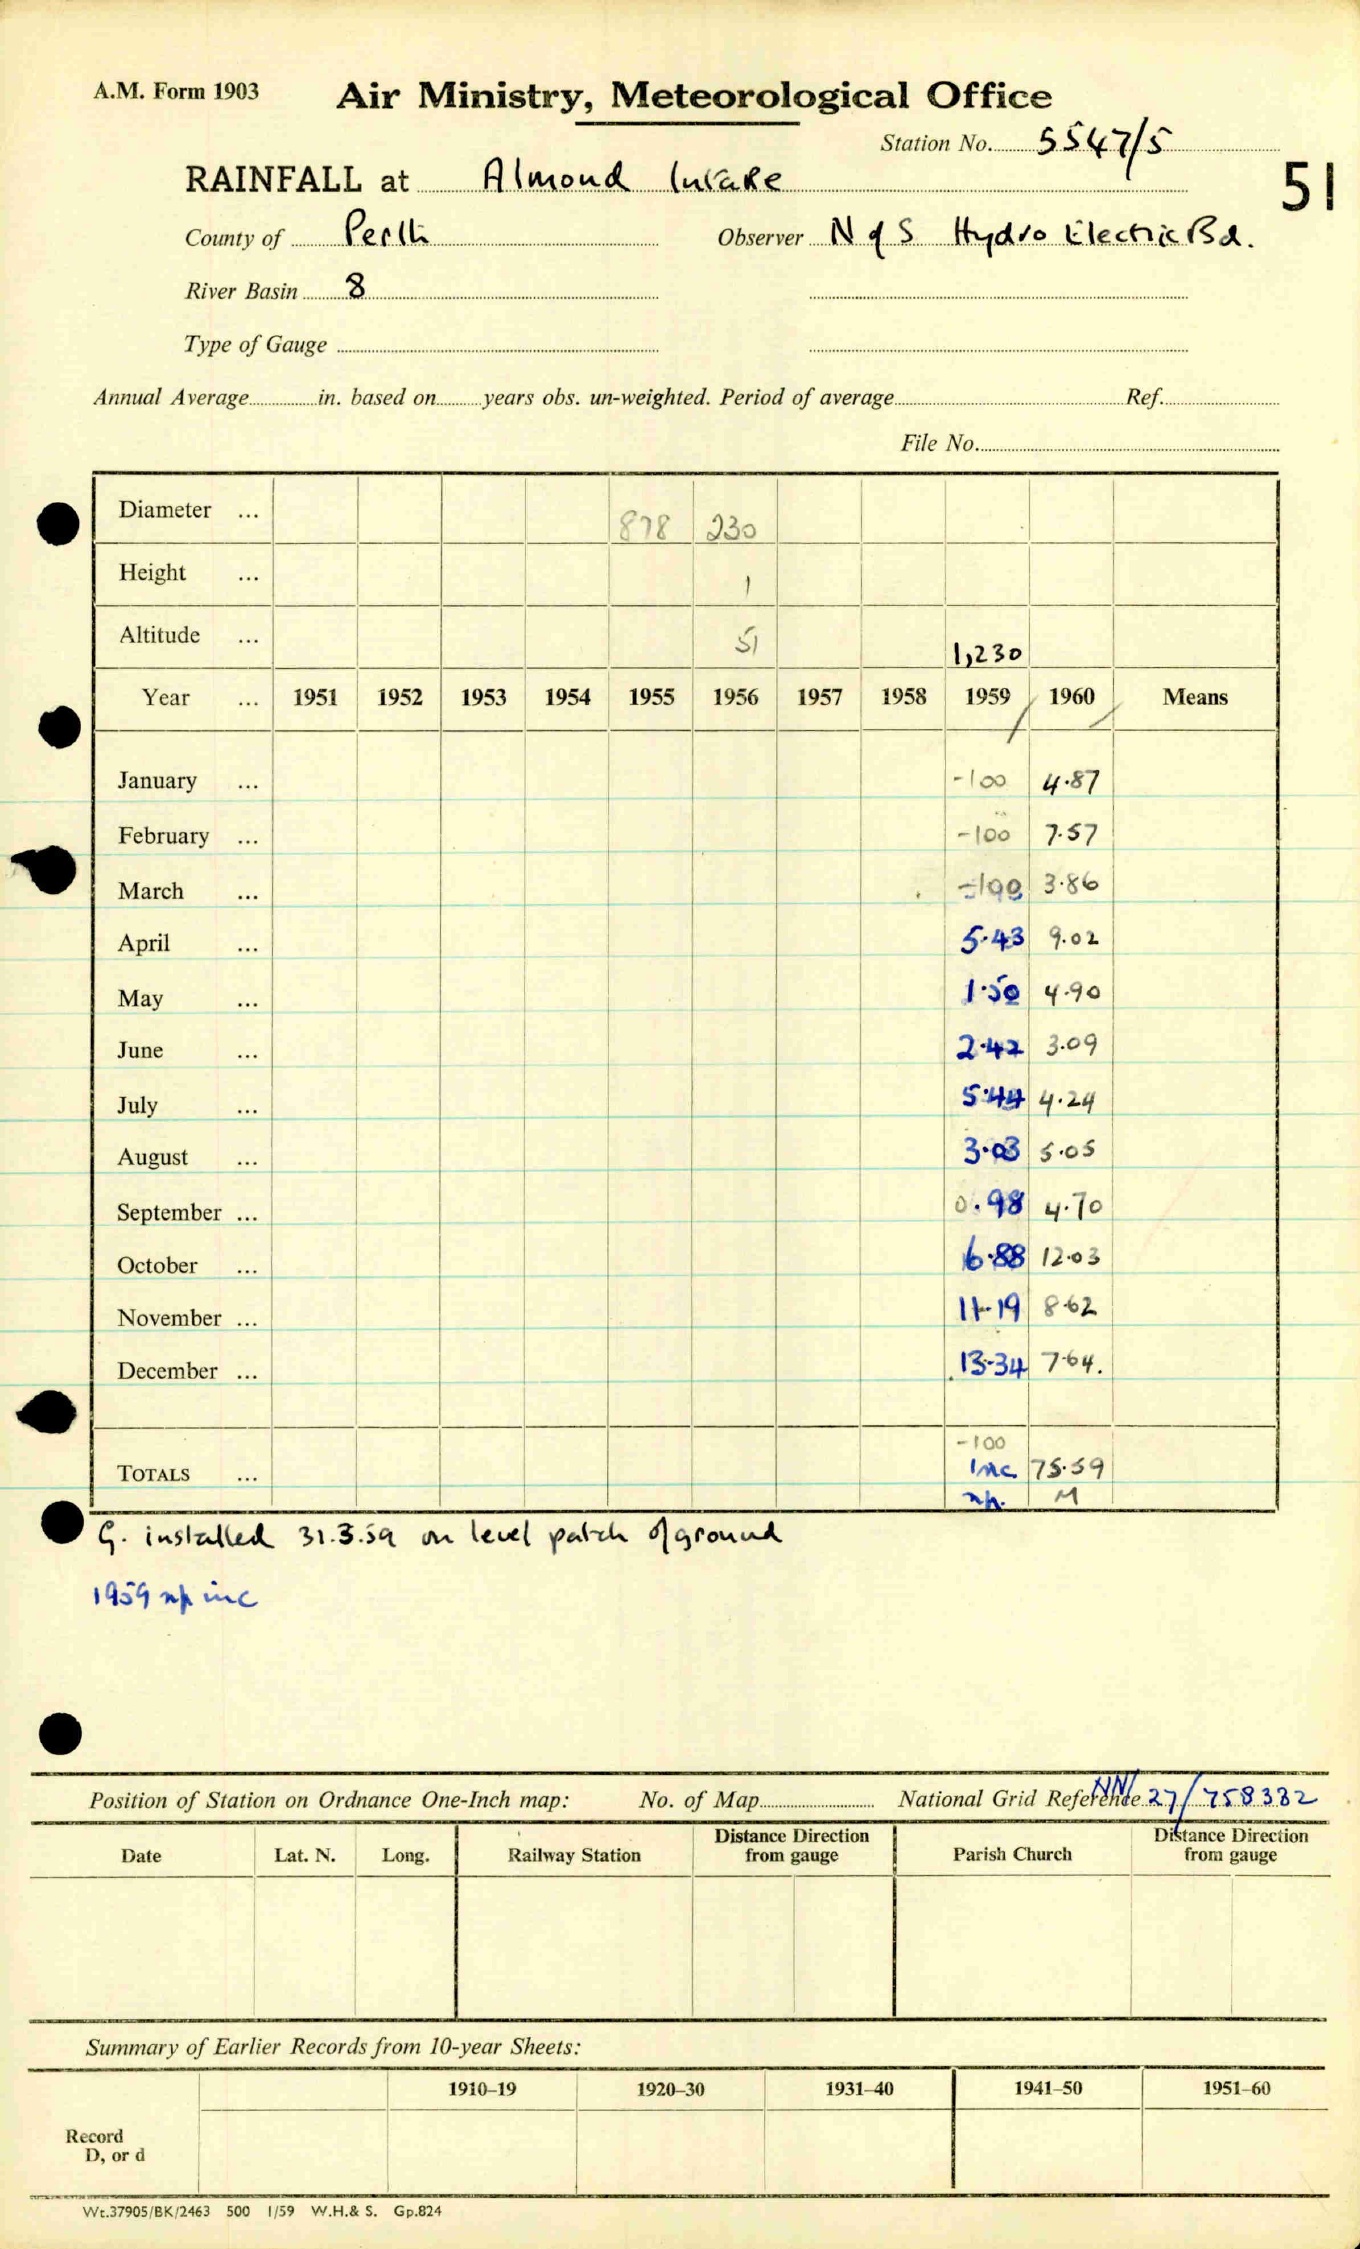 A.M. Form 1903
Air Ministry, Meteorological Office
Station No. 5547/5
51
RAINFALL at Almond Intake
County of Perth Observer N of S Hydro Electric Bd.
River Basin 8
Type of Gauge
Annual Average in. based on years obs. un-weighted. Period of average Ref.
File No.
Diameter ... 878 230
Height ... 1
Altitude ... 51 1,230
Year ... 1951 1952 1953 1954 1955 1956 1957 1958 1959 1960 Means
January ... -100 4.87
February ... -100 7.57
March ... -100 3.86
April ... 5.43 9.02
May ... 1.50 4.90
June ... 2.42 3.09
July ... 5.44 4.24
August ... 3.03 5.05
September ... 0.98 4.70
October ... 6.88 12.03
November ... 11.19 8.62
December ... 13.34 7.64.
-100
TOTALS ... Inc. 75.59
np. M
G. installed 31.3.59 on level patch of ground
1959 np inc
Position of Station on Ordnance One-Inch map: No. of Map National Grid Reference NN/ 27/758332
Date Lat. N. Long. Railway Station Distance Direction from gauge Parish Church Distance Direction from gauge
Summary of Earlier Records from 10-year Sheets:
1910–19 1920–30 1931–40 1941–50 1951–60
Record
D, or d
Wt.37905/BK/2463 500 1/59 W.H.& S. Gp.824